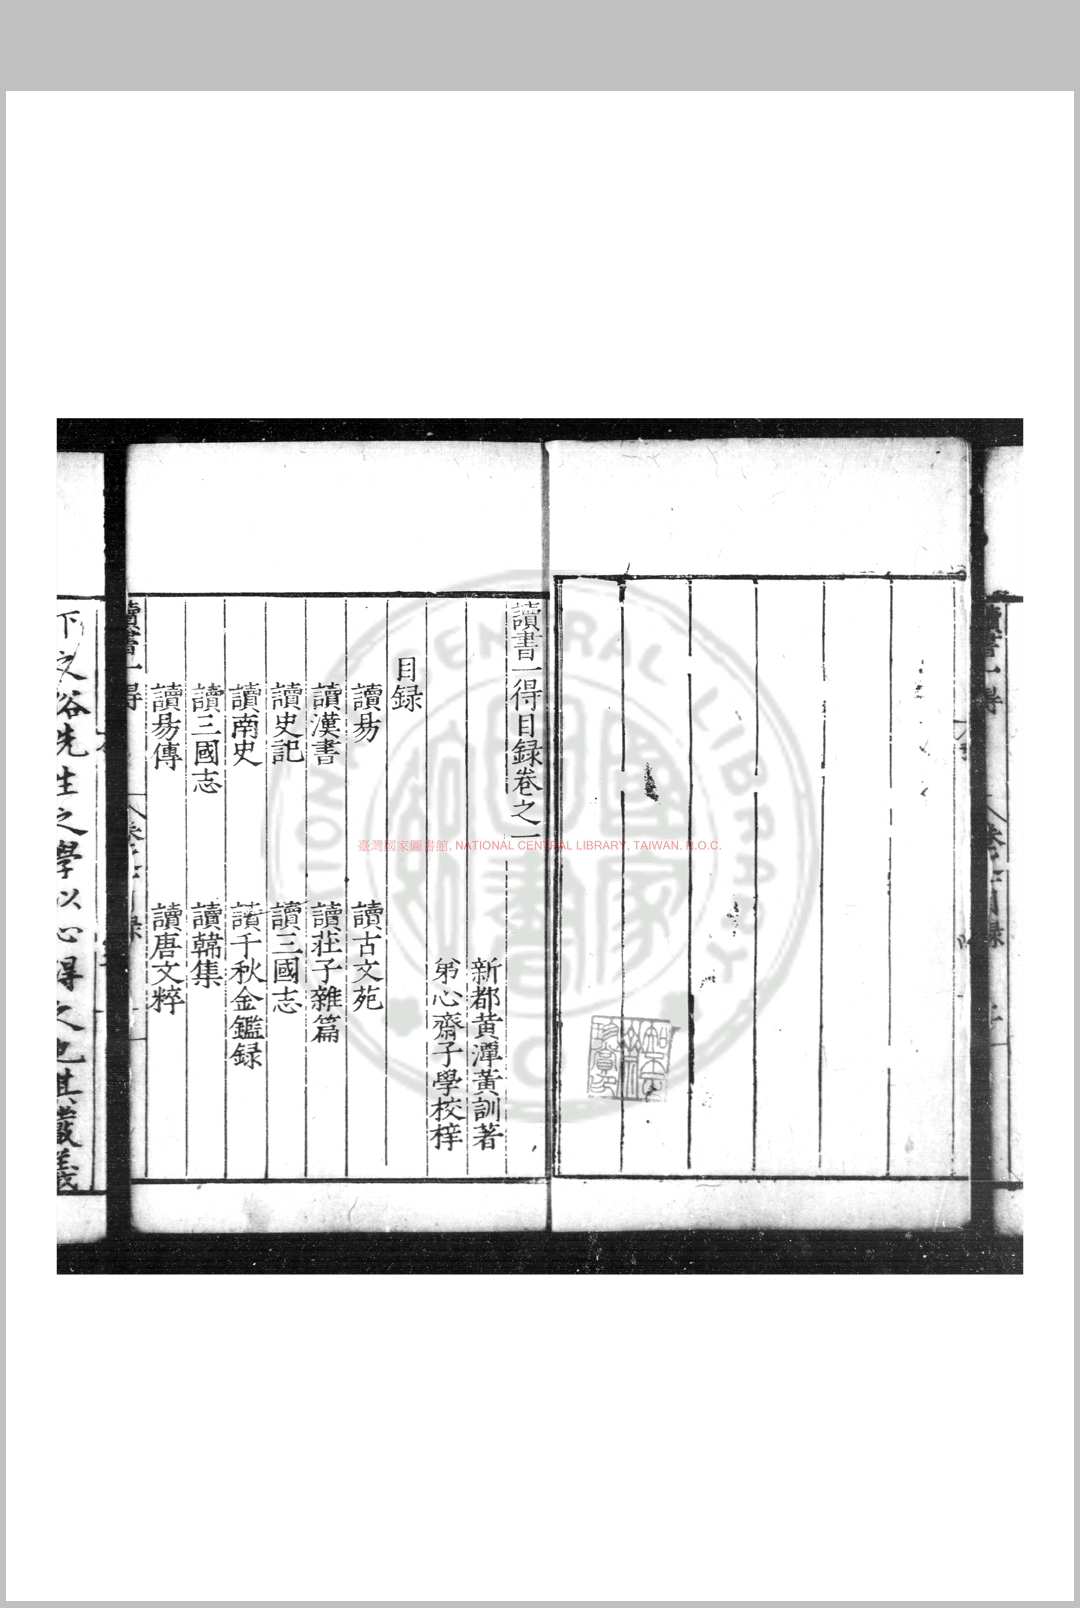 讀書一得目録卷之一
新都黄潭黄訓著
弟心齋子學校梓
目録
讀易　讀古文苑
讀漢書　讀莊子雜篇
讀史記　讀三國志
讀南史　讀千秋金鑑録
讀三國志　讀韓集
讀易傳　讀唐文粹
讀書一得
下之谷先生之學以心得之也其義
臺灣國家圖書館, NATIONAL CENTRAL LIBRARY, TAIWAN, R.O.C.